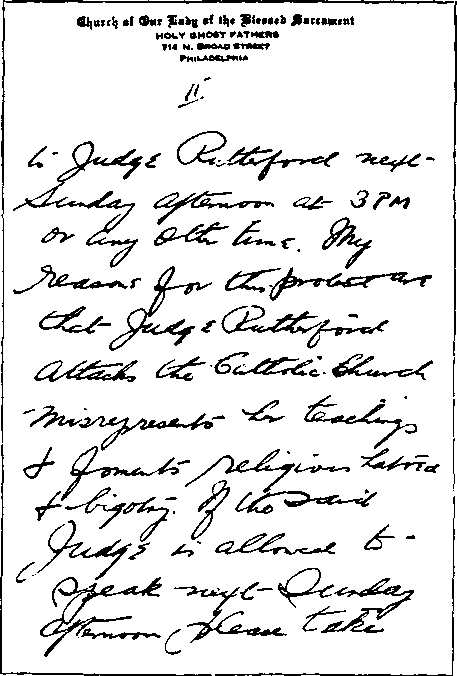 Church of Our Lady of the Blessed Sacrament
HOLY GHOST FATHERS
714 N. BROAD STREET
PHILADELPHIA
II
to Judge Rutterford next
Sunday afternoon at 3 PM
or any other time. My
reasons for this protest are
that Judge Rutherford
attacks the Catholic Church
misrepresents her teachings
& foments religious hatred
& bigotry. If the said
Judge is allowed to
speak next Sunday
afternoon please take